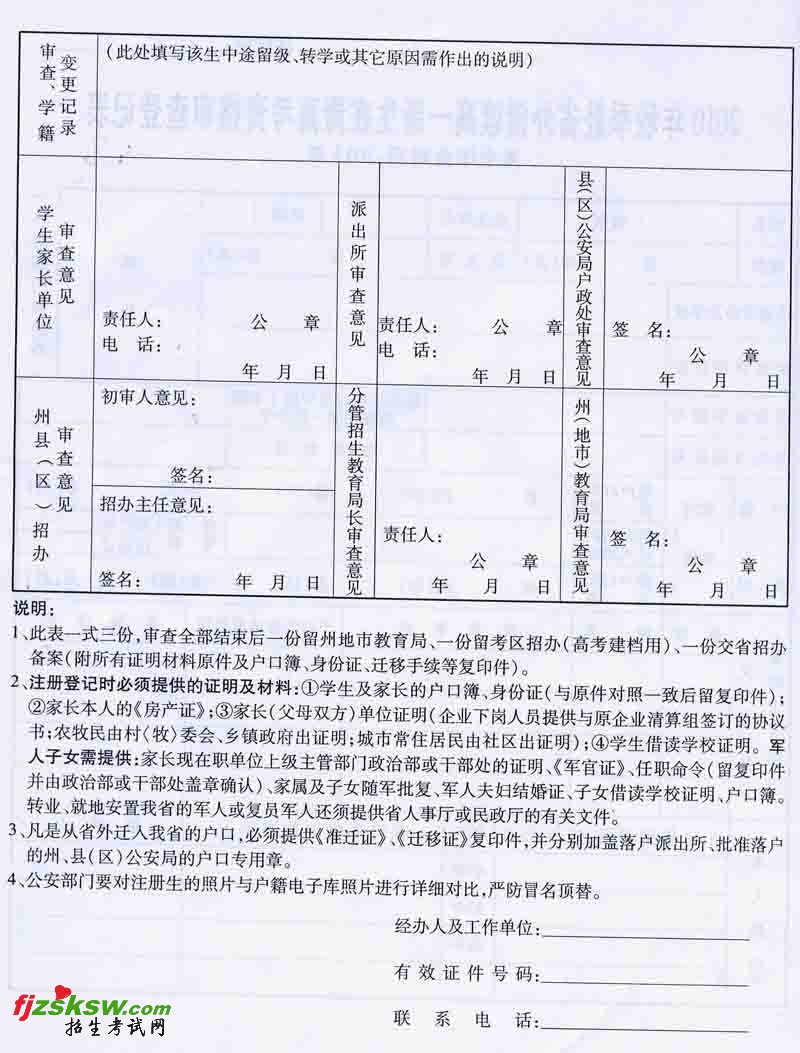 审查、学籍
变更记录
(此处填写该生中途留级、转学或其它原因需作出的说明)
学生家长单位
审查意见
责任人: 公 章
电 话:
年 月 日
派出所审查意见
责任人: 公 章
电 话:
年 月 日
县(区)公安局户政处审查意见
签 名:
公 章
年 月 日
州县(区)招办
审查意见
初审人意见:
签名:
招办主任意见:
签名: 年 月 日
分管招生教育局长审查意见
责任人:
公 章
年 月 日
州(地市)教育局审查意见
签 名:
公 章
年 月 日
说明:
1、此表一式三份,审查全部结束后一份留州地市教育局、一份留考区招办(高考建档用)、一份交省招办
备案(附所有证明材料原件及户口簿、身份证、迁移手续等复印件)。
2、注册登记时必须提供的证明及材料:①学生及家长的户口簿、身份证(与原件对照一致后留复印件);
②家长本人的《房产证》;③家长(父母双方)单位证明(企业下岗人员提供与原企业清算组签订的协议
书;农牧民由村(牧)委会、乡镇政府出证明;城市常住居民由社区出证明);④学生借读学校证明。军
人子女需提供:家长现在职单位上级主管部门政治部或干部处的证明、《军官证》、任职命令(留复印件
并由政治部或干部处盖章确认)、家属及子女随军批复、军人夫妇结婚证、子女借读学校证明、户口簿。
转业、就地安置我省的军人或复员军人还须提供省人事厅或民政厅的有关文件。
3、凡是从省外迁入我省的户口,必须提供《准迁证》、《迁移证》复印件,并分别加盖落户派出所、批准落户
的州、县(区)公安局的户口专用章。
4、公安部门要对注册生的照片与户籍电子库照片进行详细对比,严防冒名顶替。
经办人及工作单位:
有效证件号码:
联 系 电 话:
fjzsksw.com
招生考试网